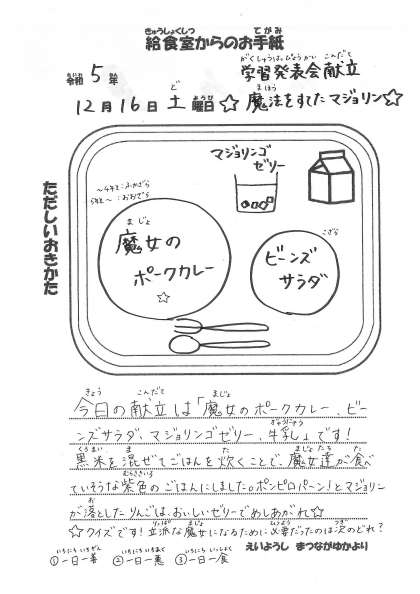 給食室からのお手紙
令和5年
学習発表会献立
12月16日土曜日☆魔法をすてたマジョリン☆
マジョリンゴ
ゼリー
ただしいおきかた
魔女の
ポークカレー
☆
ビーンズ
サラダ
今日の献立は「魔女のポークカレー、ビー
ンズサラダ、マジョリンゴゼリー、牛乳」です！
黒米を混ぜてごはんを炊くことで、魔女達が食べ
ていそうな紫色のごはんにしました。ポンピロパーン！とマジョリン
が落としたりんごは、おいしいゼリーでめしあがれ☆
☆クイズです！立派な魔女になるために必要だったのは次のどれ？
えいようし まつながゆかより
①一日一善 ②一日一悪 ③一日一食